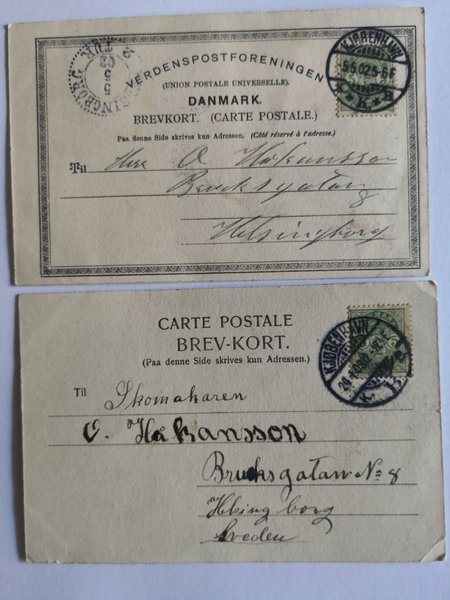 VERDENSPOSTFORENINGEN
(UNION POSTALE UNIVERSELLE).
DANMARK.
BREVKORT. (CARTE POSTALE.)
Paa denne Side skrives kun Adressen. (Côté réservé à l'adresse.)
Til Herr O Håkansson
Bruksgatan
Helsingborg
KJØBENHAVN
5.5.02 5-6F
K
CARTE POSTALE
BREV-KORT.
(Paa denne Side skrives kun Adressen.)
KJØBENHAVN
K
Til Skomakaren
O. Håkansson
Bruksgatan No 8
Hbing borg
Sveden